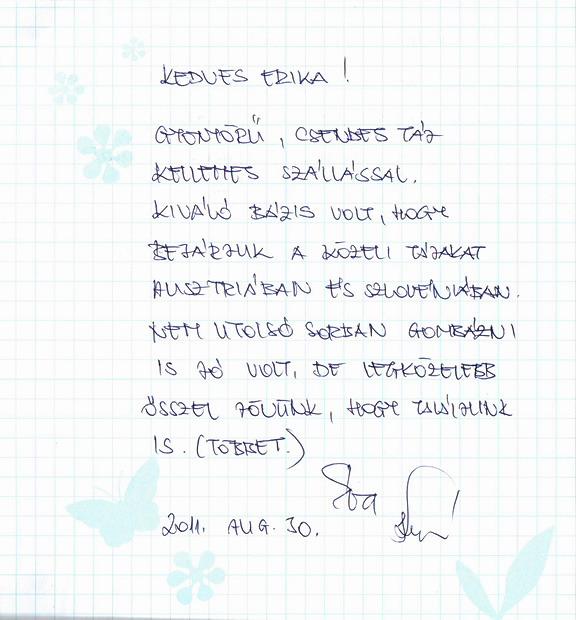 KEDVES ERIKA!
GYÖNYÖRŰ, CSENDES TÁJ
KELLEMES SZÁLLÁSSAL.
KIVÁLÓ BÁZIS VOLT, HOGY
BEJÁRJUK A KÖZELI TÁJAKAT
AUSZTRIÁBAN ÉS SZLOVÉNIÁBAN.
NEM UTOLSÓ SORBAN GOMBÁZNI
IS JÓ VOLT, DE LEGKÖZELEBB
ŐSSZEL JÖVÜNK, HOGY TALÁLJUNK
IS. (TÖBBET.)
Éva
2011. AUG. 30.